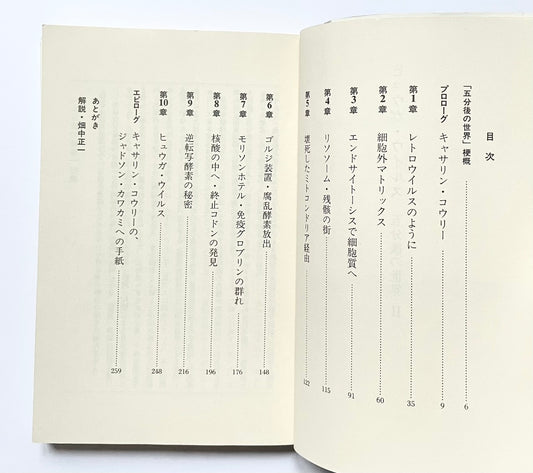 目次
「五分後の世界」梗概 6
プロローグ キャサリン・コウリー 9
第1章 レトロウイルスのように 35
第2章 細胞外マトリックス 60
第3章 エンドサイトーシスで細胞質へ 91
第4章 リソソーム・残骸の街 115
第5章 壊死したミトコンドリア経由 132
第6章 ゴルジ装置・腐乱酵素放出 148
第7章 モリソンホテル・免疫グロブリンの群れ 176
第8章 核酸の中へ・終止コドンの発見 196
第9章 逆転写酵素の秘密 216
第10章 ヒュウガ・ウイルス 248
エピローグ キャサリン・コウリーの、
ジャドソン・カワカミへの手紙 259
あとがき
解説・畑中正一